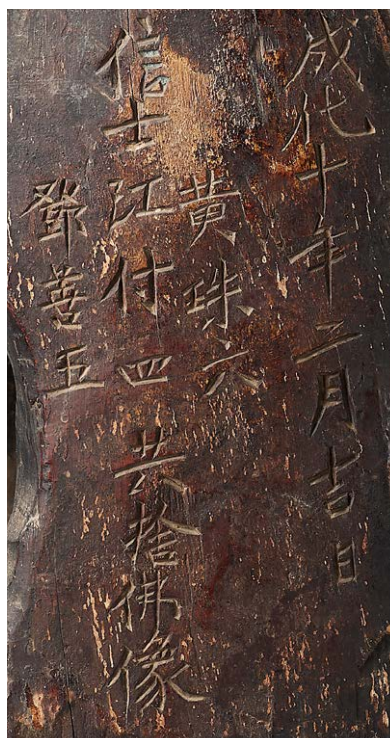 成化十年二月吉日
黄珠六
信士江付四共捨佛像
鄧善五